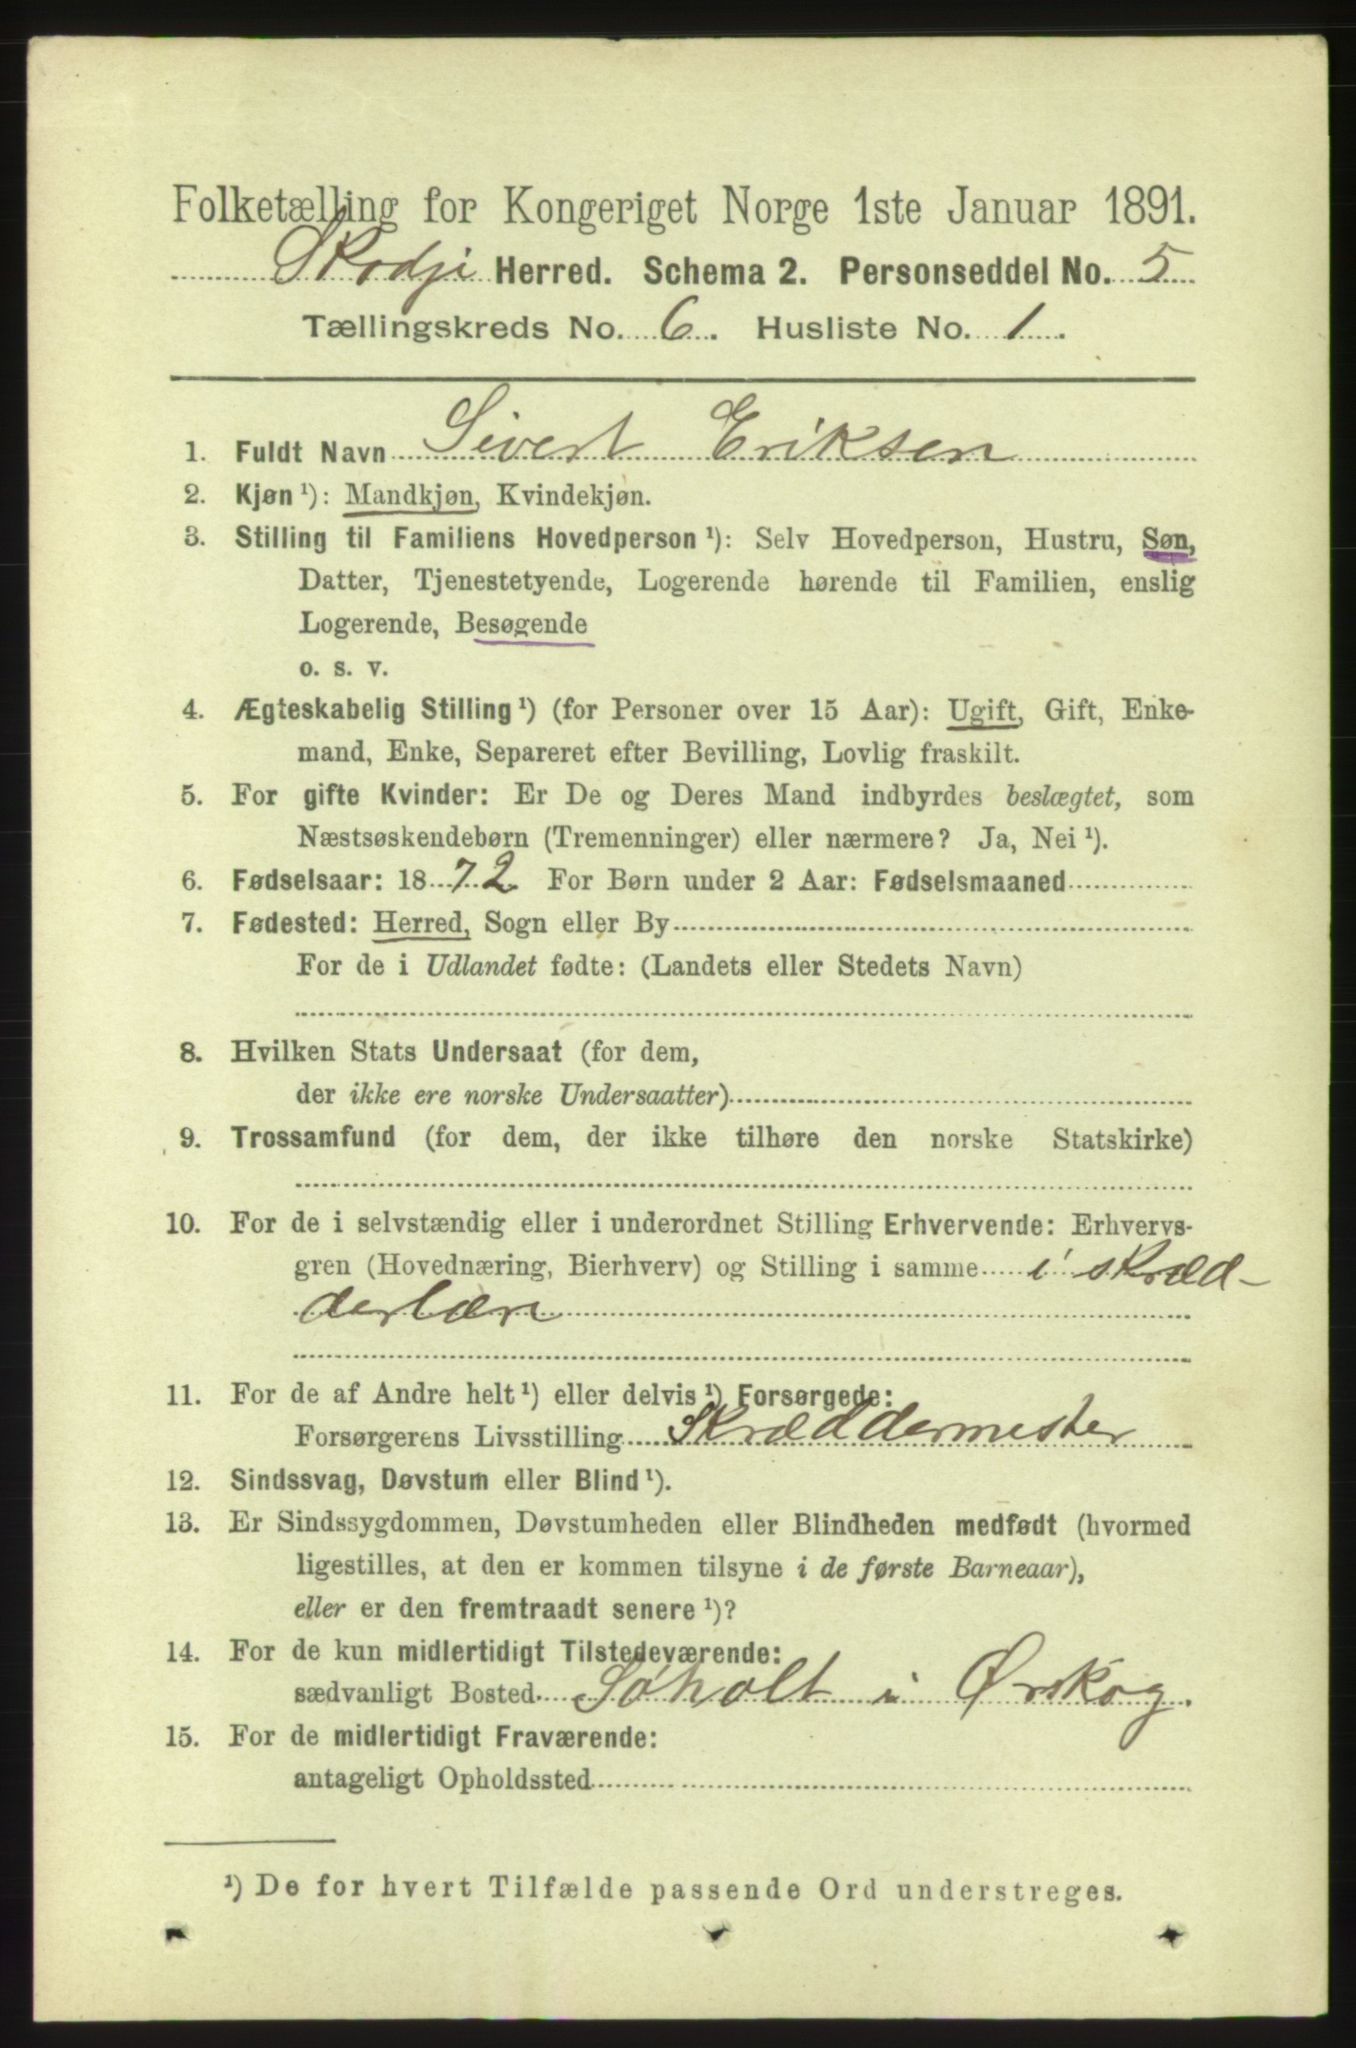 Folketælling for Kongeriget Norge 1ste Januar 1891.
Skodje Herred. Schema 2. Personseddel No. 5
Tællingskreds No. 6. Husliste No. 1.
1. Fuldt Navn Sivert Eriksen
2. Kjøn ¹): Mandkjøn, Kvindekjøn.
3. Stilling til Familiens Hovedperson ¹): Selv Hovedperson, Hustru, Søn,
Datter, Tjenestetyende, Logerende hørende til Familien, enslig
Logerende, Besøgende
o. s. v.
4. Ægteskabelig Stilling ¹) (for Personer over 15 Aar): Ugift, Gift, Enke-
mand, Enke, Separeret efter Bevilling, Lovlig fraskilt.
5. For gifte Kvinder: Er De og Deres Mand indbyrdes beslægtet, som
Næstsøskendebørn (Tremenninger) eller nærmere? Ja, Nei ¹).
6. Fødselsaar: 1872 For Børn under 2 Aar: Fødselsmaaned
7. Fødested: Herred, Sogn eller By
For de i Udlandet fødte: (Landets eller Stedets Navn)
8. Hvilken Stats Undersaat (for dem,
der ikke ere norske Undersaatter)
9. Trossamfund (for dem, der ikke tilhøre den norske Statskirke)
10. For de i selvstændig eller i underordnet Stilling Erhvervende: Erhvervs-
gren (Hovednæring, Bierhverv) og Stilling i samme i skræd-
derlære
11. For de af Andre helt ¹) eller delvis ¹) Forsørgede:
Forsørgerens Livsstilling Skræddermester
12. Sindssvag, Døvstum eller Blind ¹).
13. Er Sindssygdommen, Døvstumheden eller Blindheden medfødt (hvormed
ligestilles, at den er kommen tilsyne i de første Barneaar),
eller er den fremtraadt senere ¹)?
14. For de kun midlertidigt Tilstedeværende:
sædvanligt Bosted Søholt i Ørskog.
15. For de midlertidigt Fraværende:
antageligt Opholdssted
¹) De for hvert Tilfælde passende Ord understreges.